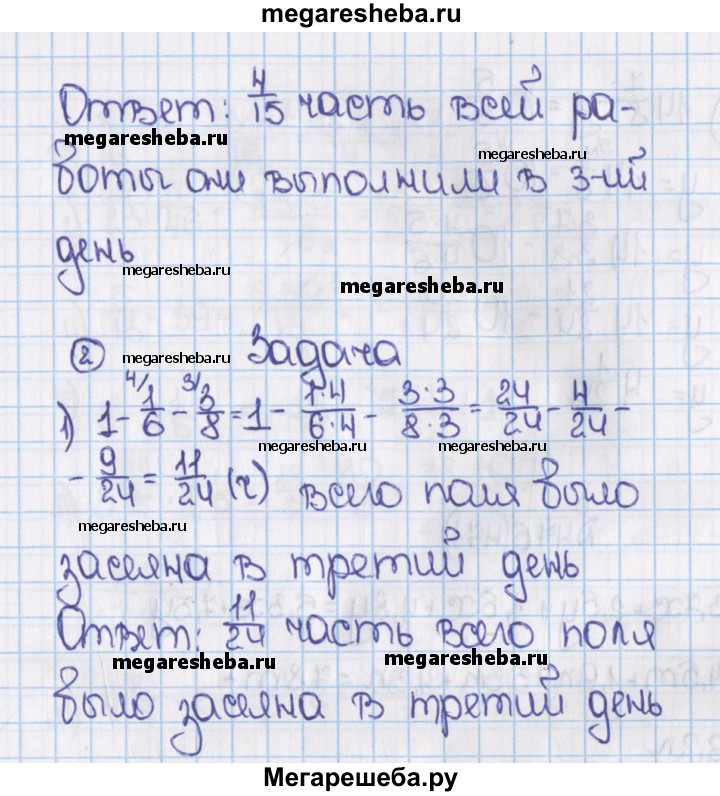 megaresheba.ru
Ответ: 4/15 часть всей ра-
megaresheba.ru
megaresheba.ru
боты они выполнили в 3-ий
день
megaresheba.ru
megaresheba.ru
② megaresheba.ru Задача
1) 1 - 4/ 1/6 - 3/ 3/8 = 1 - 1·4/6·4 - 3·3/8·3 = 24/24 - 4/24 -
megaresheba.ru
megaresheba.ru
- 9/24 = 11/24 (ч) всего поля было
megaresheba.ru
засеяна в третий день
Ответ: 11/24 часть всего поля
megaresheba.ru
megaresheba.ru
было засеяна в третий день
Мегарешеба.ру